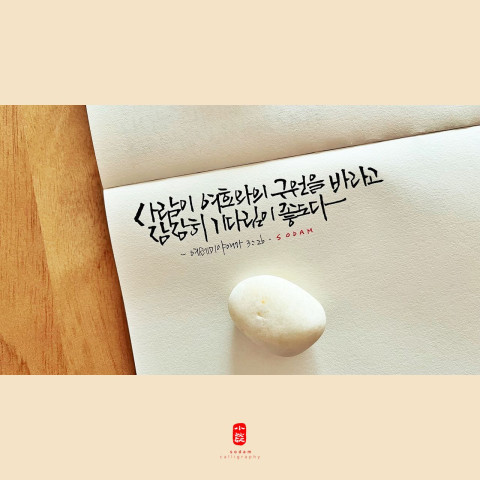 사람이 여호와의 구원을 바라고
잠잠히 기다림이 좋도다
- 예레미야애가 3:26 - SODAM
sodam
calligraphy